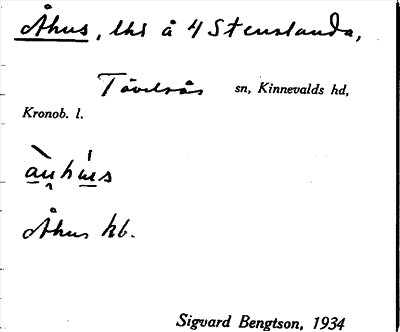 Åhus, lht å 4 Stenslanda,
Tävelsås sn, Kinnevalds hd,
Kronob. l.
Åhus hb.
Sigvard Bengtson, 1934